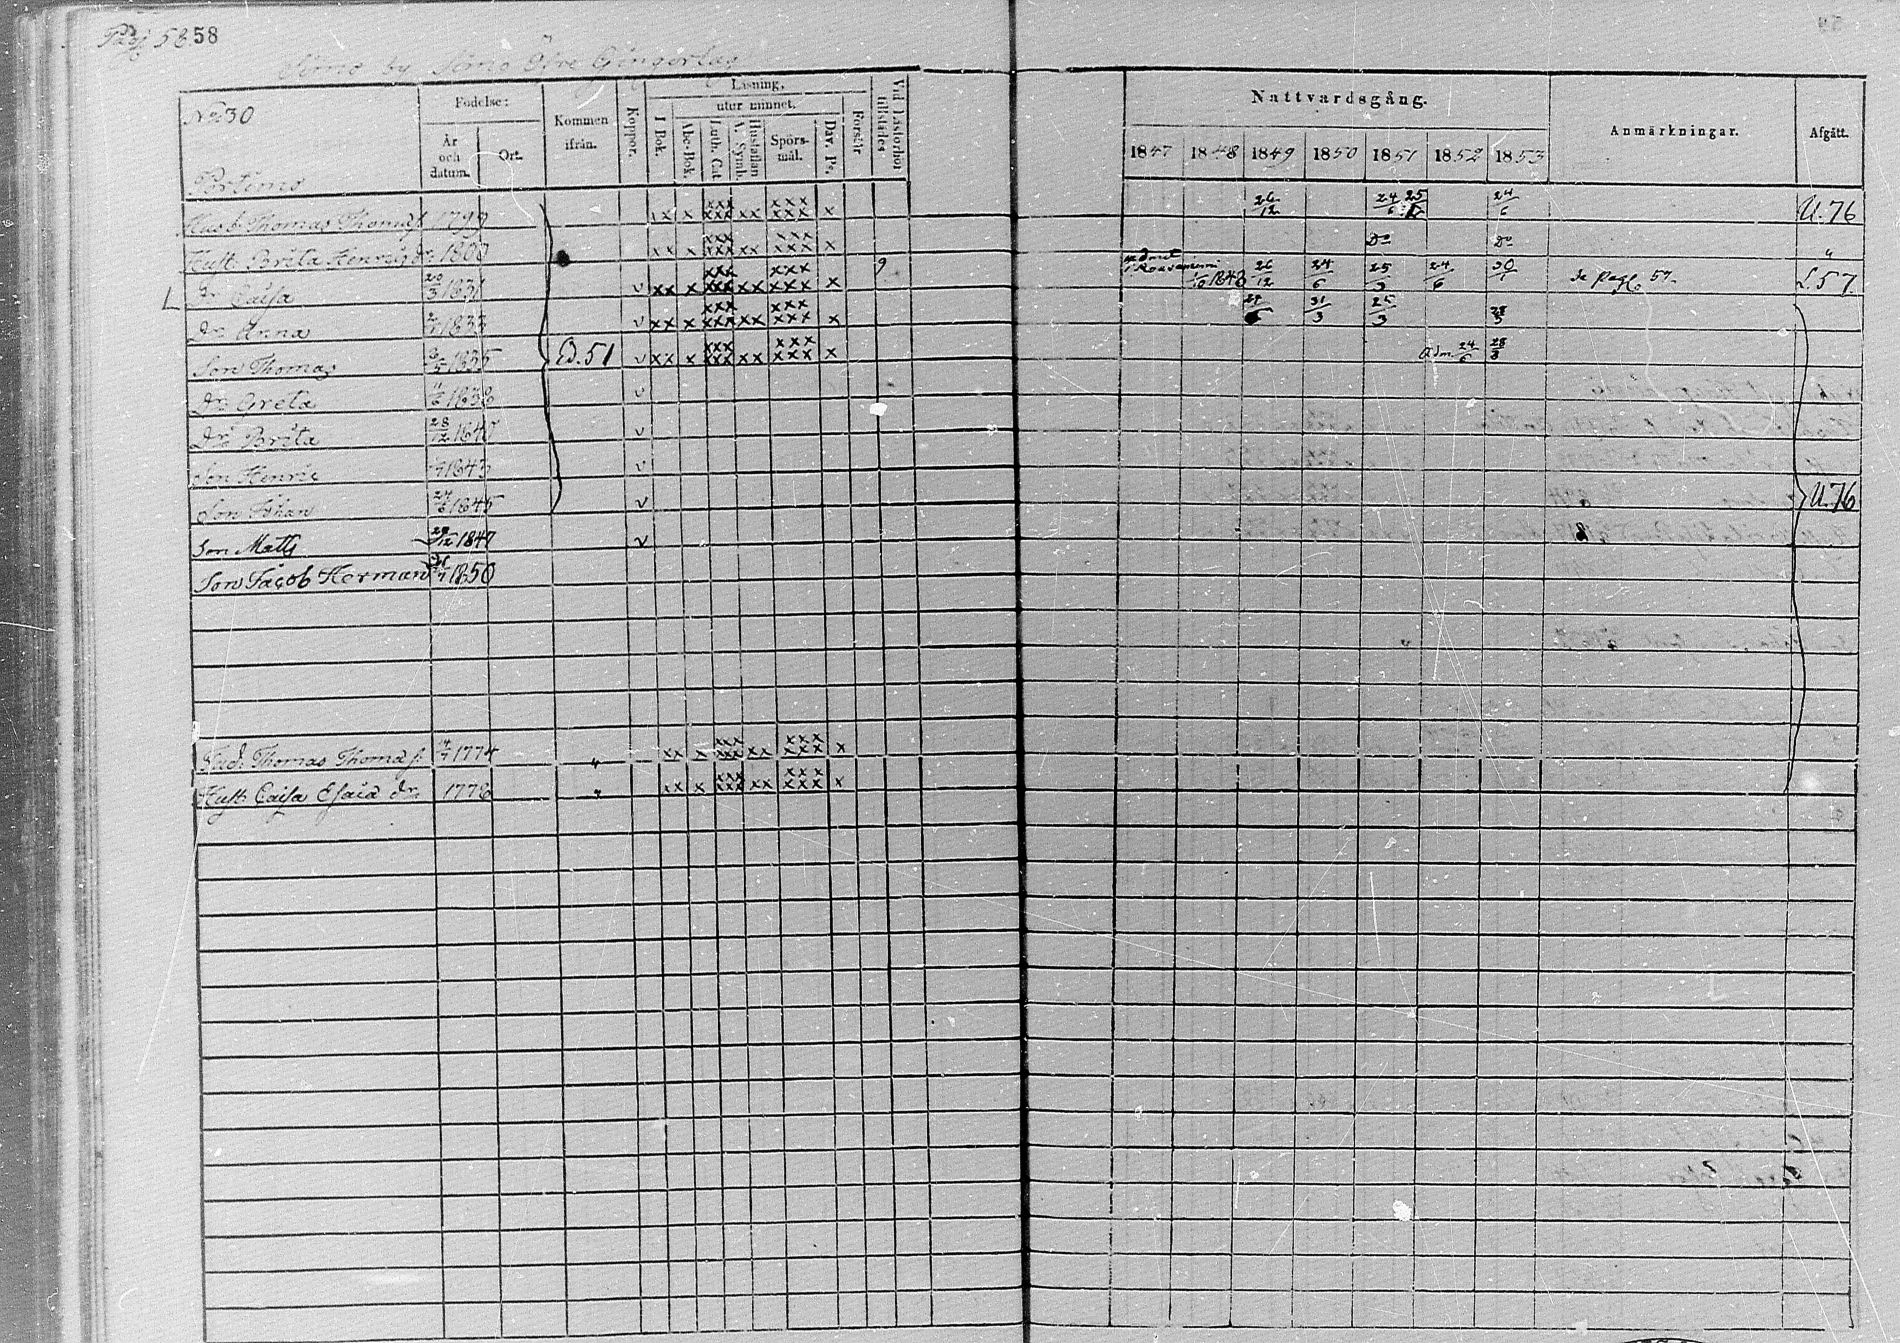 Pag. 58 58
Simo by Simo Öfre Gingerlag
No 30
Födelse:
År och datum.
Ort.
Kommen ifrån.
Koppor.
Läsning,
utur minnet.
I Bok.
Abc-Bok.
Luth. Cat.
Hustaflan A. Symb.
Spörs-mål.
Dav. Ps.
Förstår
Vid Läsförhör tillstädes
Nattvardsgång.
1847 1848 1849 1850 1851 1852 1853
Anmärkningar.
Afgått.
Portimo
Husb. Thomas Thomas s. 1799 xx x xxx xxx xx xxx xxx x 26/12 24/6 25/12 24/6 U. 76
Hust. Brita Henrics dr 1800 xx x xxx xxx xx xxx xxx x Do Do "
L Dr Caisa 20/3 1831 v xx x xxx xxx xx xxx xxx x 9 1848 26/12 24/6 25/3 24/6 30/1 Se pag. 57. L. 57
Dr Anna 1833 v xx x xxx xxx xx xxx xxx x 31/3 25/3 28/3
Son Thomas 1835 Ed. 51 v xx x xxx xxx xx xxx xxx x Adm 24/6 28/3
Dr Greta 1838 v
Dr Brita 28/12 1840 v
Son Henric 1843 v
Son Johan 1845 v U. 76
Son Matts 29/12 1847 v
Son Jacob Herman 1850
Fad. Thomas Thomas s. 1774 " xx x xxx xxx xx xxx xxx x
Hust. Caisa Esaia dr 1778 " xx x xxx xxx xx xxx xxx x